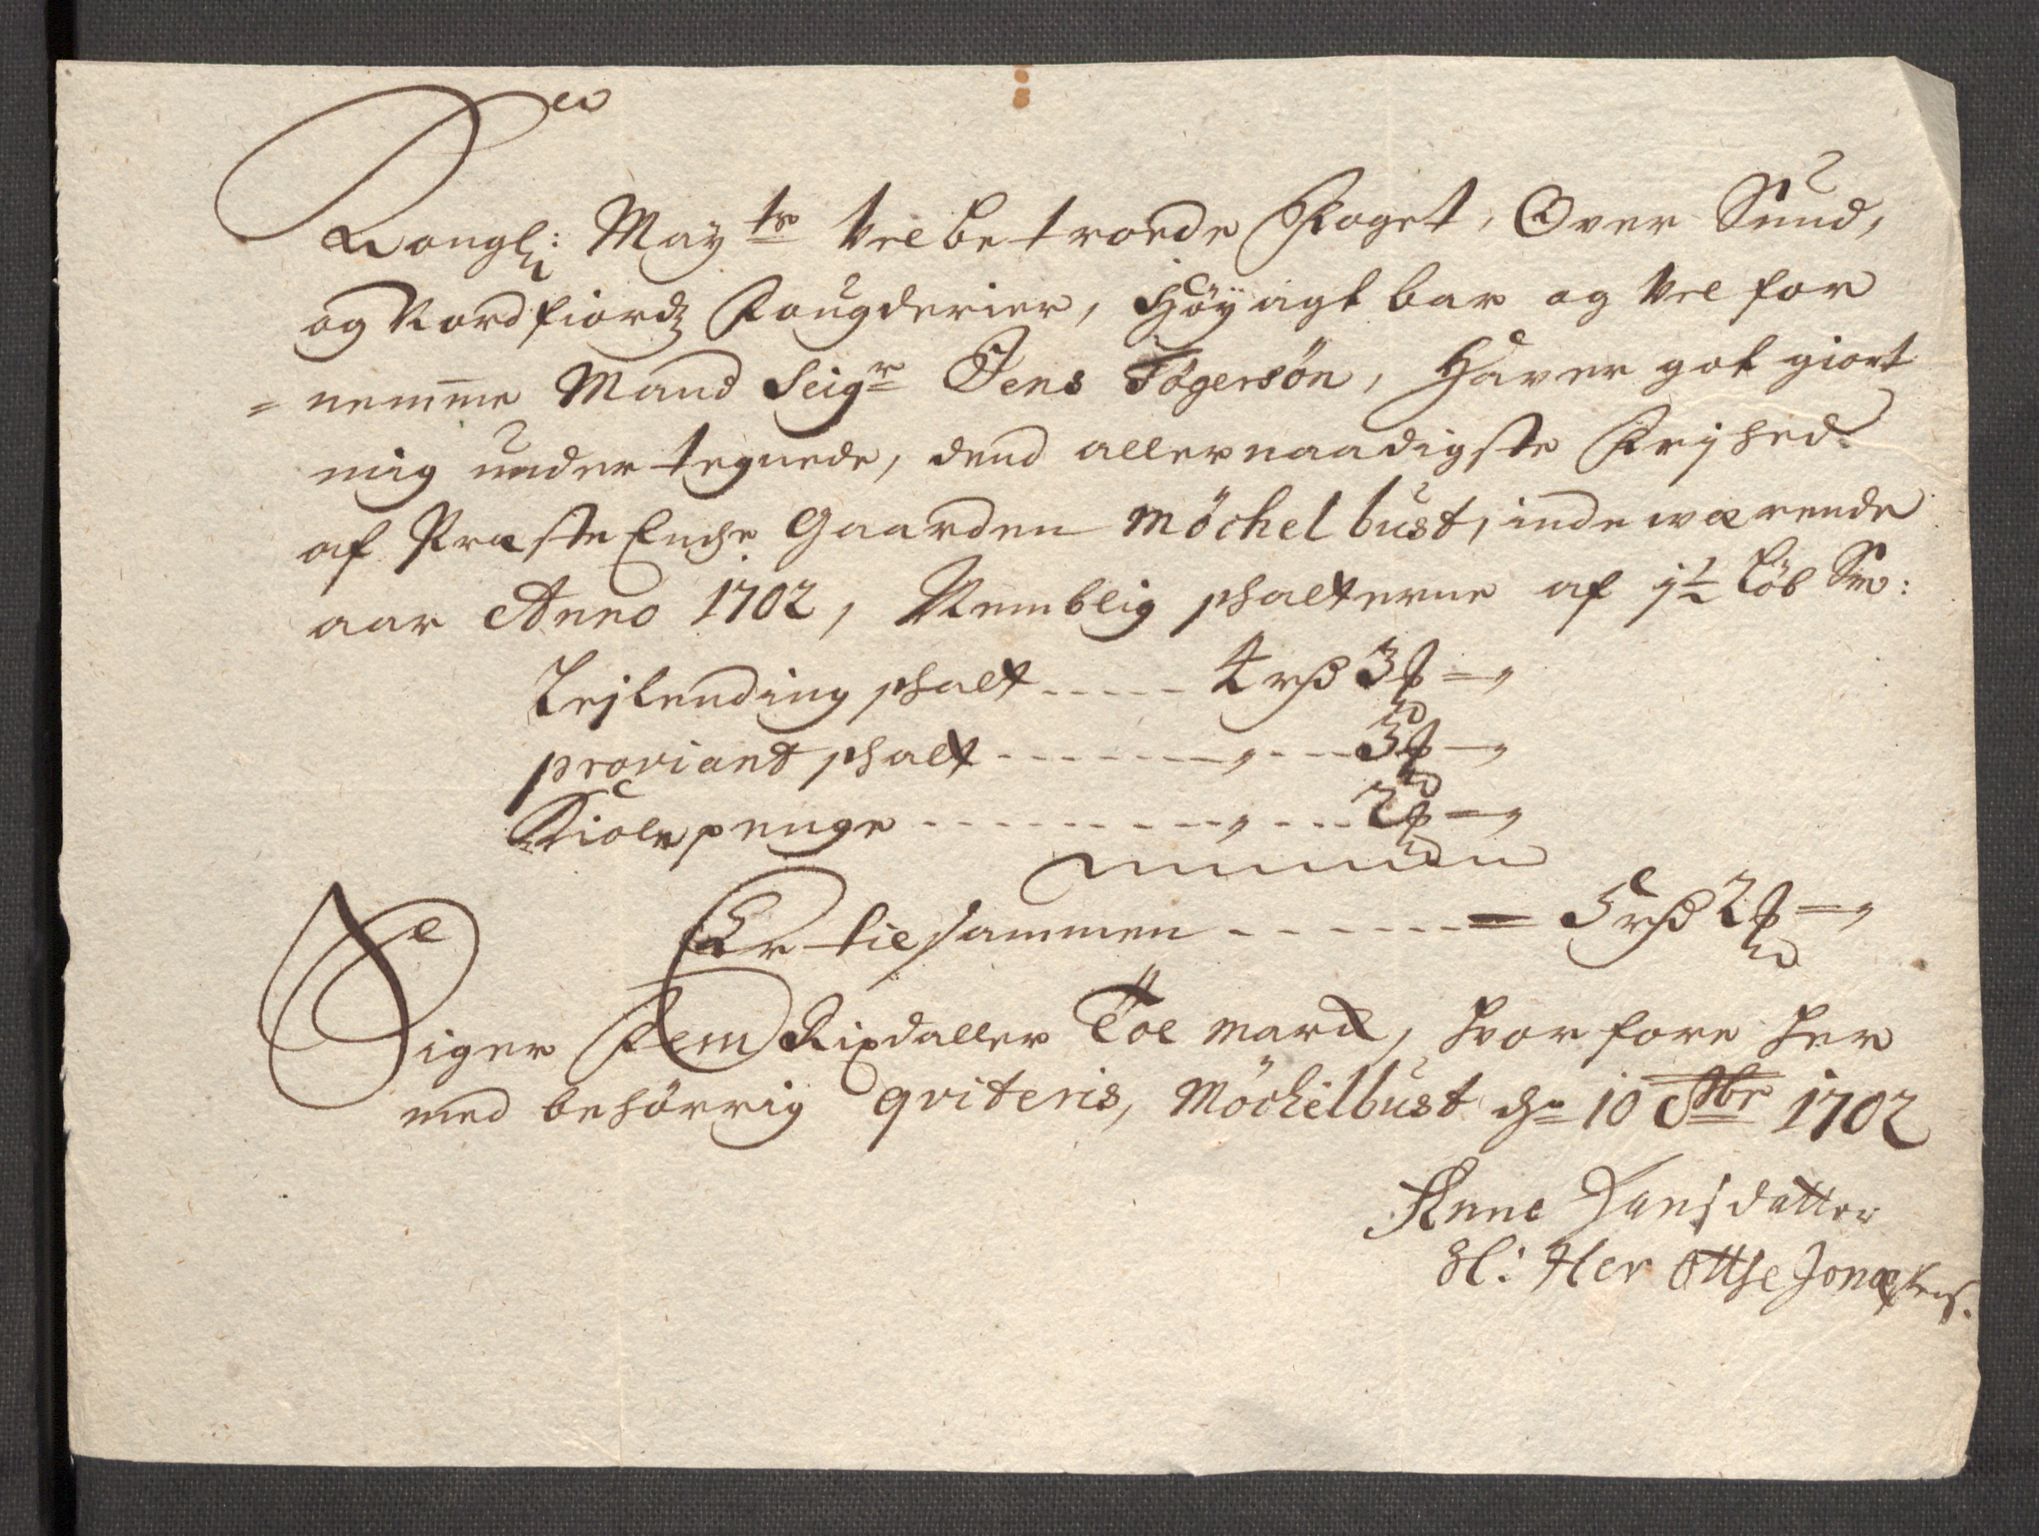 Kongl: Mayts Vel betroede Foget, Over Sund,
og Nordfiordz Fougderier, Höyagtbar og Vel for
= nemme Mand Seigr Jens Tögersön, Haver got giort
mig undertegnede, dend allernaadigste Frijhed.
af Præste Enche Gaarden Möchelbust, indeværende
aar Anno 1702, Nemblig schatterne af 1½ Löb Sm:
Leylending schatt ..... 4 rß 3 ₰ — „
proviant schatt ......... „ .... 3 ₰ — „
Kiole penge ............ „ .... 2 ₰ — „
Er tilsammen ........ = 5 rß 2 ₰ — „
Siger Fem Rixdaller Toe marck, hvorfore her
med behörrig qviteris, Möchelbust dn 10 1702
Anne Hansdatter
Sl: Her Ottse Jonæsens.